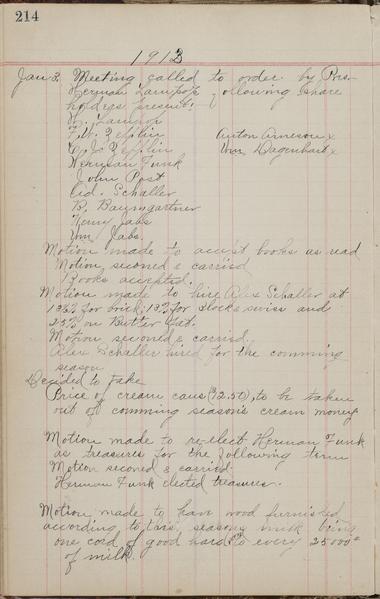 214
1913
Jan 3. Meeting called to order by Pres.
Herman Lampop following share
holders present:
H. Lampop
F. W. Zefflin Anton Arneson x
C. J. Zefflin Wm. Dagenhart x
Herman Funk
John Post
Ed. Schaller
B. Baumgartner
Henry Jabs
Wm. Jabs.
Motion made to accept books as read
Motion seconed & carried
Books accepted.
Motion made to hire Alex Schaller at
for brick, for block swiss and
on Butter fat.
Motion seconed & carried.
Alex Schaller hired for the comming
season
Decided to take
Price of cream cans ($2.50) to be taken
out of comming season's cream money
Motion made to re-elect Herman Funk
as treasures for the following term
Motion seconed & carried.
Herman Funk elected treasures.
Motion made to have wood furnished
according to this seasons milk being
one cord of good hard to every 25000#
of milk.